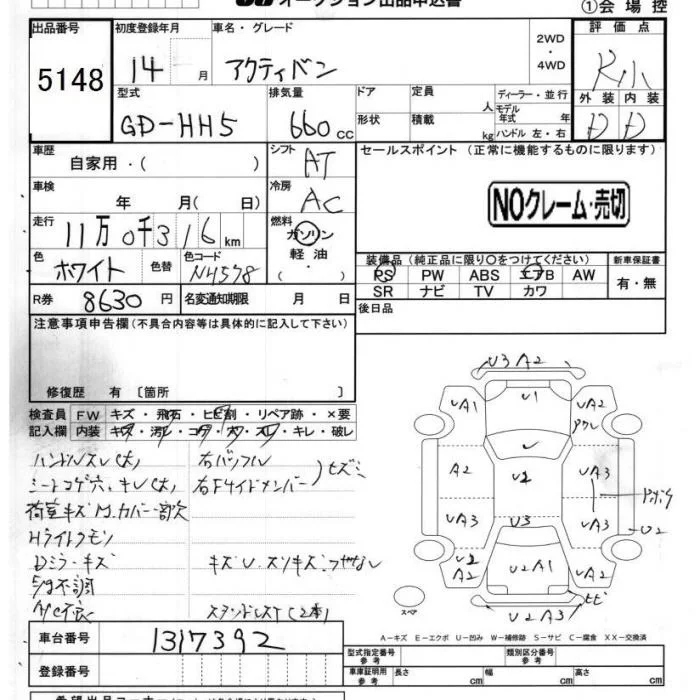 オークション出品申込書
①会場控
出品番号 初度登録年月 車名・グレード 2WD・4WD 評価点
5148 14 月 アクティバン R小
外装 内装
D D
型式 排気量 ドア 定員 人 ディーラー・並行
GD-HH5 660cc 形状 積載 kg モデル年式 年 ハンドル 左・右
車歴 シフト セールスポイント (正常に機能するものに限ります)
自家用・( ) AT
車検 冷房
年 月( 日) AC NOクレーム・売切
走行 燃料
11万0千316km ガソリン・軽油・( )
色 色替 色コード 装備品(純正品に限り○をつけてください) 新車保証書
ホワイト N4578 PS PW ABS エアB AW 有・無
SR ナビ TV カワ
R券 8630円 名変通知期限 月 日 後日品
注意事項申告欄(不具合内容等は具体的に記入して下さい)
修復歴 有 〔箇所 〕
検査員記入欄 FW キズ・飛石・ヒビ割・リペア跡・×要
内装 キズ・汚レ・コゲ・穴・スレ・キレ・破レ
ハンドルスレ(大) 右バッフル
シートコゲ穴、キレ(大) 右Fサイドメンバー ヒズミ
荷室キズ
Hライトクモリ
Dミラーキズ
不調
A/C不良
U3 A2
U1
UA1 UA2
A2 U2 UA3
UA3 U3 UA3 U2
U2 A2 U2A1 UA2
ヒビ
スペア U2A3
A-キズ E-エクボ U-凹み W-補修跡 S-サビ C-腐食 XX-交換済
車台番号 1317392 型式指定番号 参考 類別区分番号 参考
登録番号 車庫証明用 参考 長さ cm 幅 cm 高さ cm